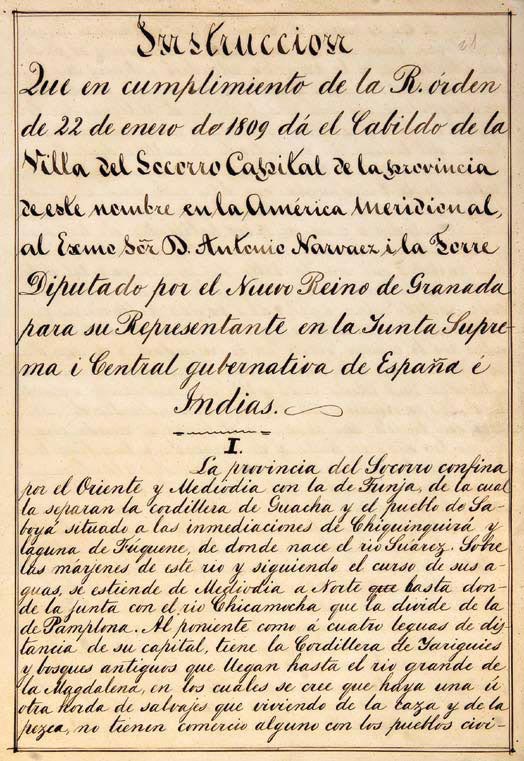 Instruccion
Que en cumplimiento de la R. órden
de 22 de enero de 1809 dá el Cabildo de la
Villa del Socorro Capital de la provincia
de este nombre en la América Meridional,
al Exmo Sor. D. Antonio Narvaez i la Torre
Diputado por el Nuevo Reino de Granada
para su Representante en la Junta Supre-
ma i Central gubernativa de España é
Indias.
I.
La provincia del Socorro confina
por el Oriente y Mediodia con la de Tunja, de la cual
la separan la cordillera de Guacha y el pueblo de Sa-
boyá situado a las inmediaciones de Chiquinquirá y
laguna de Fúquene, de donde nace el rio Suárez. Sobre
las marjenes de este rio y siguiendo el curso de sus a-
guas, se estiende de Mediodia a Norte que hasta don-
de la junta con el rio Chicamocha que la divide de la
de Pamplona. Al poniente como á cuatro leguas de dis-
tancia de su capital, tiene la Cordillera de Yariguies
y bosques antiguos que llegan hasta el rio grande de
la Magdalena, en los cuales se cree que haya una ú
otra horda de salvajes que viviendo de la caza y de la
pezca, no tienen comercio alguno con los pueblos civi-